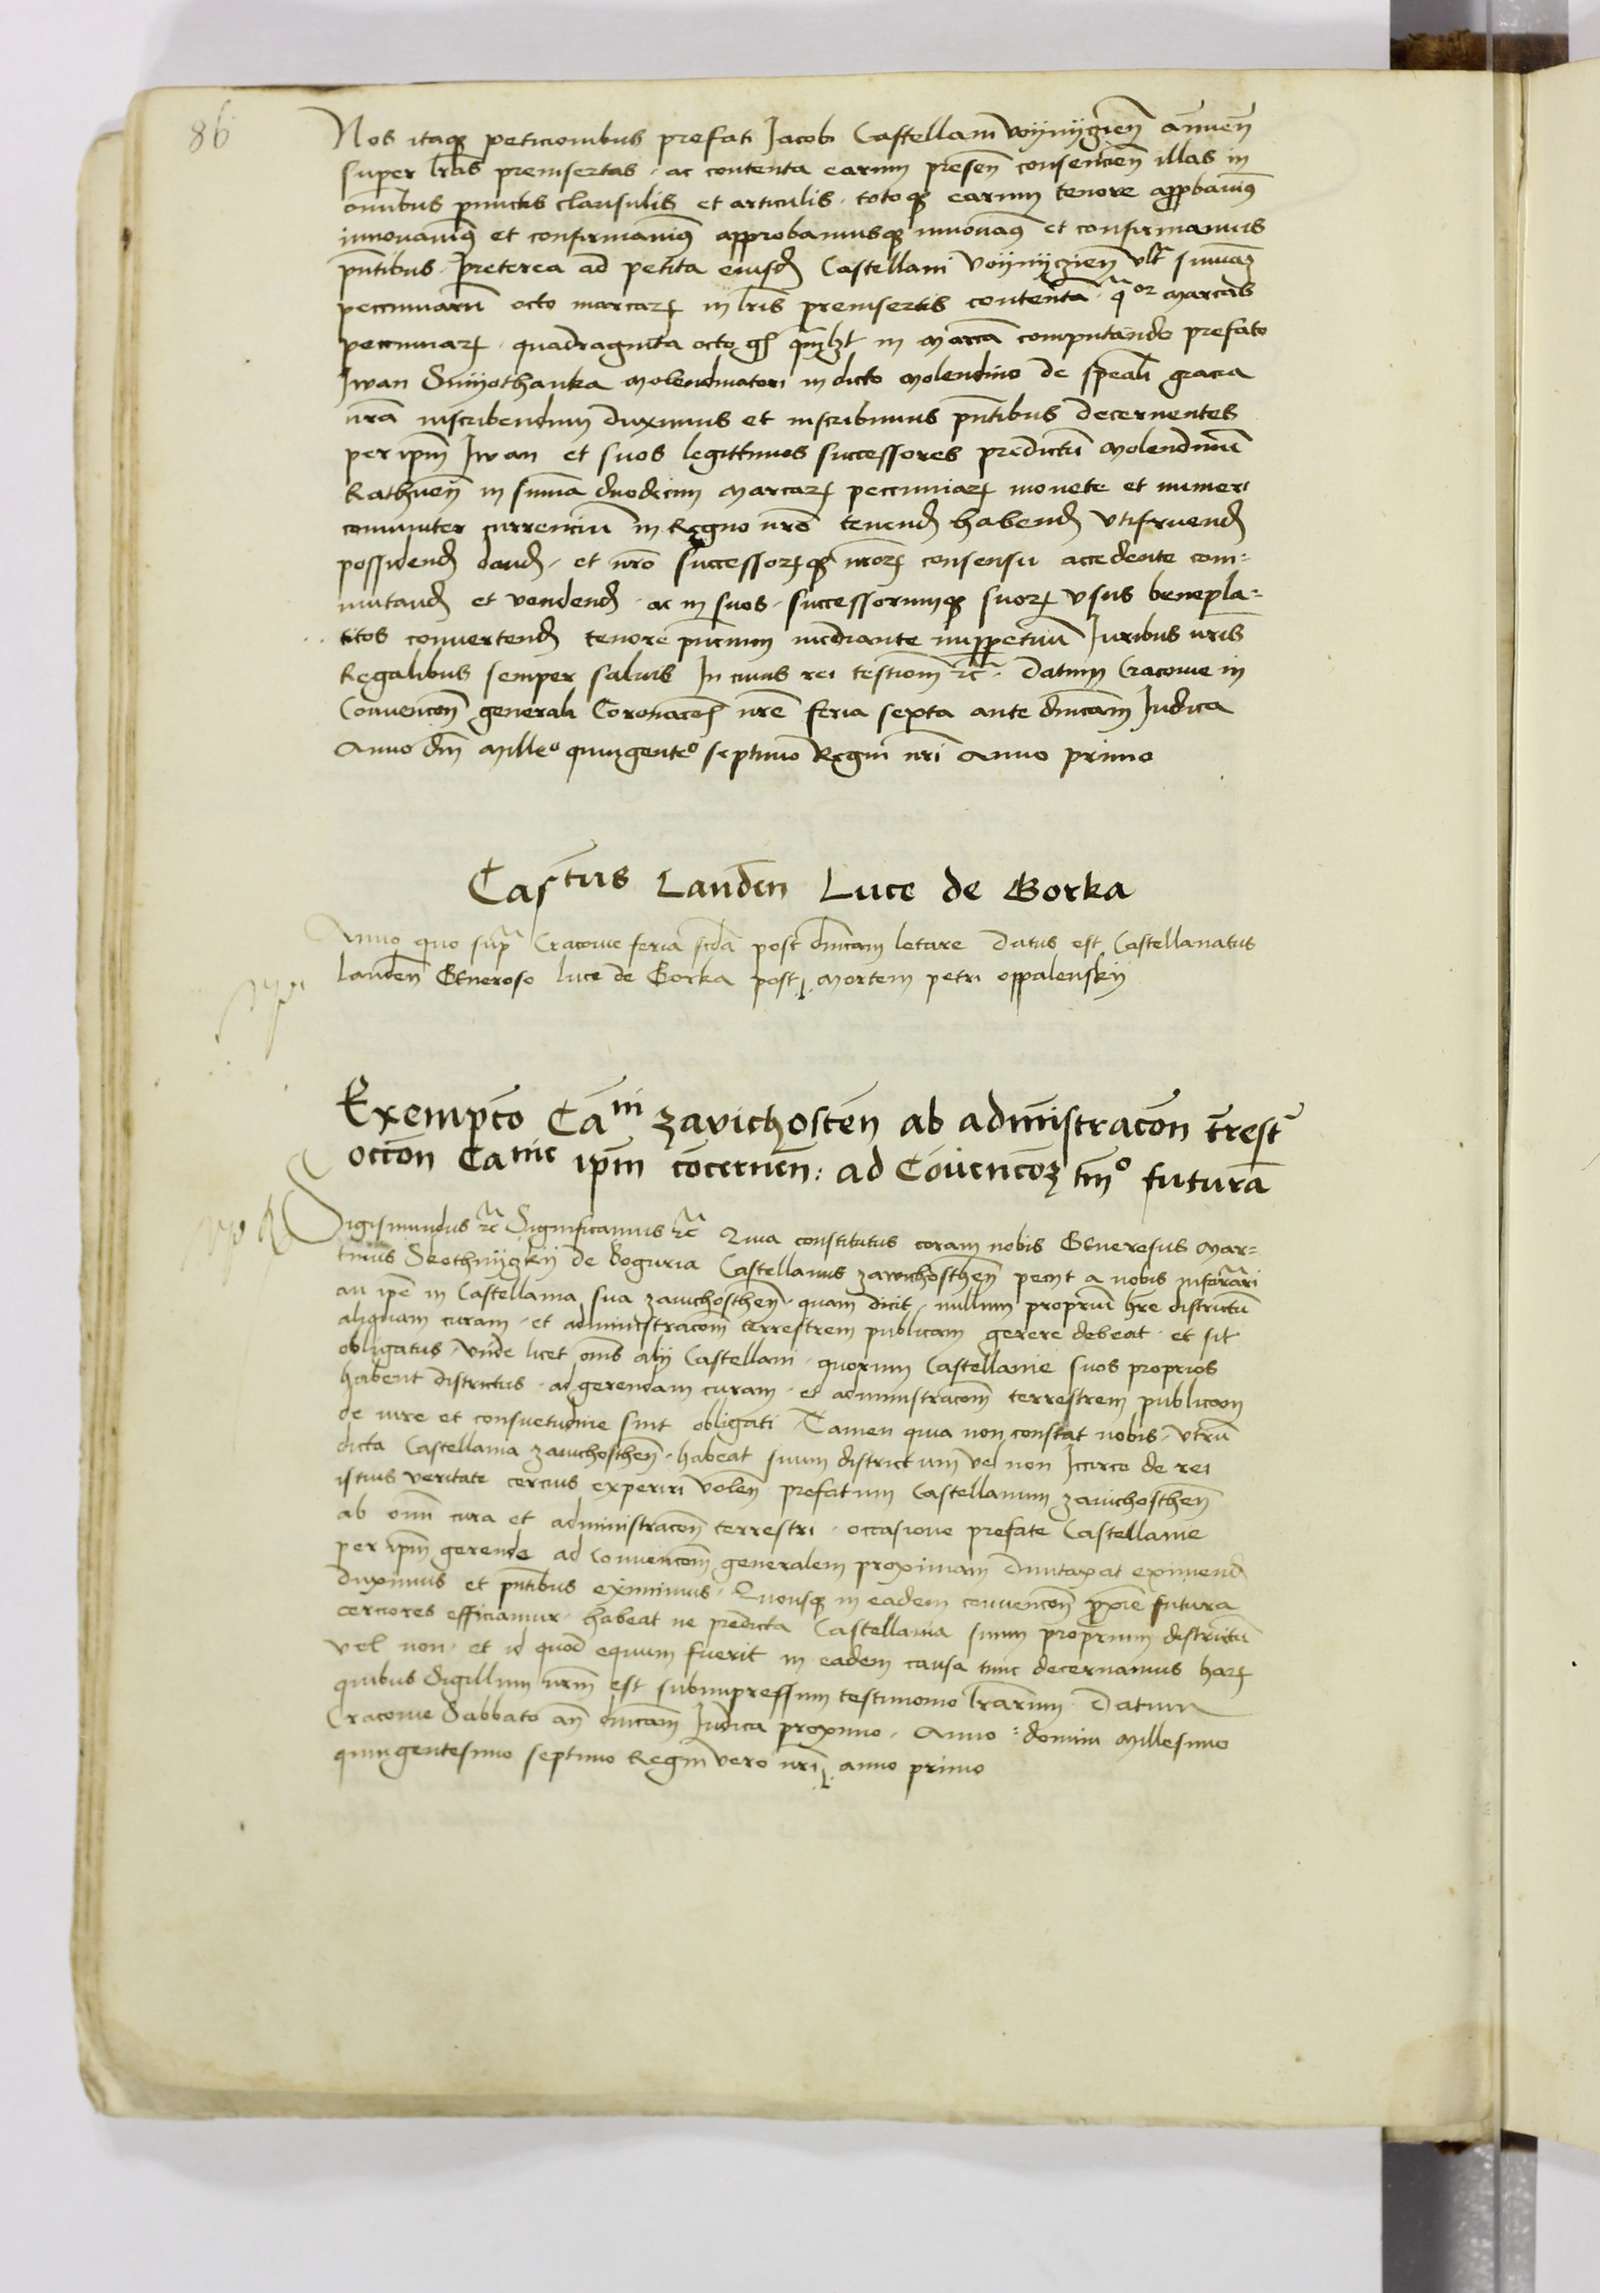 86
Nos itaqꝫ peticionibus prefati Jacobi Castellani voÿnÿczieñ añueñ
super lr̃as preinsertas · ac contenta earum preseñ consencieñ illas in
omībus punctis clausulis et articulis · totoqꝫ earum tenore approbavimꝰ
innovavimꝰ et confirmavimꝰ approbamusqꝫ innovamꝰ et confirmamus
pñtibus · Preterea ad petita eiusđ Castellani voÿnÿczieñ vlt̃ sum̃aꝫ
peccuniarũ octo marcarꝫ in lr̃is preinsertis contentã · qͣor marcas
peccuniarꝫ · quadraginta octo gř quilꝫt in Marcã computando prefato
Iwan Smÿothanka Molendinatori in dicto Molendino de sp̃eali gracia
nr̃a inscribendum duximus et inscribimus pñtibus Decernentes
per ip̃m Iwan et suos legittimos successores predictũ Molendinũ
Rathneñ in sum̃a duodecim Marcarꝫ peccuniarꝫ monete et numeri
comuniter currenciũ in Regno nr̃o tenenđ habenđ vtifruenđ
possidenđ danđ · et nr̃o successorꝫqꝫ nr̃orꝫ consensu accedente com=
mutanđ et vendenđ · ac in suos · successorumqꝫ suorꝫ vsus benepla=
citos convertenđ tenore pñcium mediante inp̱petuũ Iuribus nr̃is
Regalibus semper salvis In cuius rei testiom̃ ꝛc̃ · Datum Cracovie in
Convencoñ generali Coronaconis nr̃e feria sexta ante dñicam Iudica
Anno dñi Milleo quingenteo septimo Regni nr̃i Anno primo
Castus Landen Luce de Gorka
Anno quo supͣ Cracovie feria scđa post dñicam letare Datus est Castellanatus
Landeñ Generoso luce de Gorka post Mortem petri oppalenskÿ
Exempco Caͫͥ zavichosteñ ab administracoñ tr̃estr̃
occoñ Caniͤ ip̃m cõcerneñ: ad Cõvencoꝫ tm̃o futurã
Sigismundus ꝛc̃ Significamus ꝛc̃ Quia constitutus coram nobis Generosus Mar=
tinus Skothnÿczkÿ de Boguria Castellanus zawichostheñ peciit a nobis inforͣri
an ip̃e in Castellania sua zawichostheñ · quam dicit nullum propriũ hr̃e districtũ
aliquam curam · et administracom̃ terrestrem publicam gerere debeat · et sit
obligatus · vnde licet om̃s alij Castellani · quorum Castellanie suos proprios
habent districtus · ad gerendam curam · et administracom̃ terrestrem publicam
de iure et consuetudine sint obligati · Tamen quia non constat nobis · vtrũ
dicta Castellania zawichostheñ · habeat suum districtum vel non Iccirco de rei
istius veritate cercius experiri voleñ prefatum Castellanum zawichostheñ
ab omni cura et administracoñ terrestri · occasione prefate Castellanie
per ip̃m gerende ad Convencom̃ generalem proximam Dumtaxat eximenđ
duximus et pñtibus eximimus · Quousqꝫ in eadem convencoñ proxĩe futura
cerciores efficiamur · habeat ne predicta Castellania suum proprium districtũ
vel non · et id quod equum fuerit in eadem causa tunc decernamus harꝫ
quibus Sigillum nr̃m est subimpressum testimonio lr̃arum · Datum
Cracovie Sabbato añ dñicam Iudica proximo · Anno : domini Millesimo
quingentesimo septimo Regni vero nr̃i anno primo